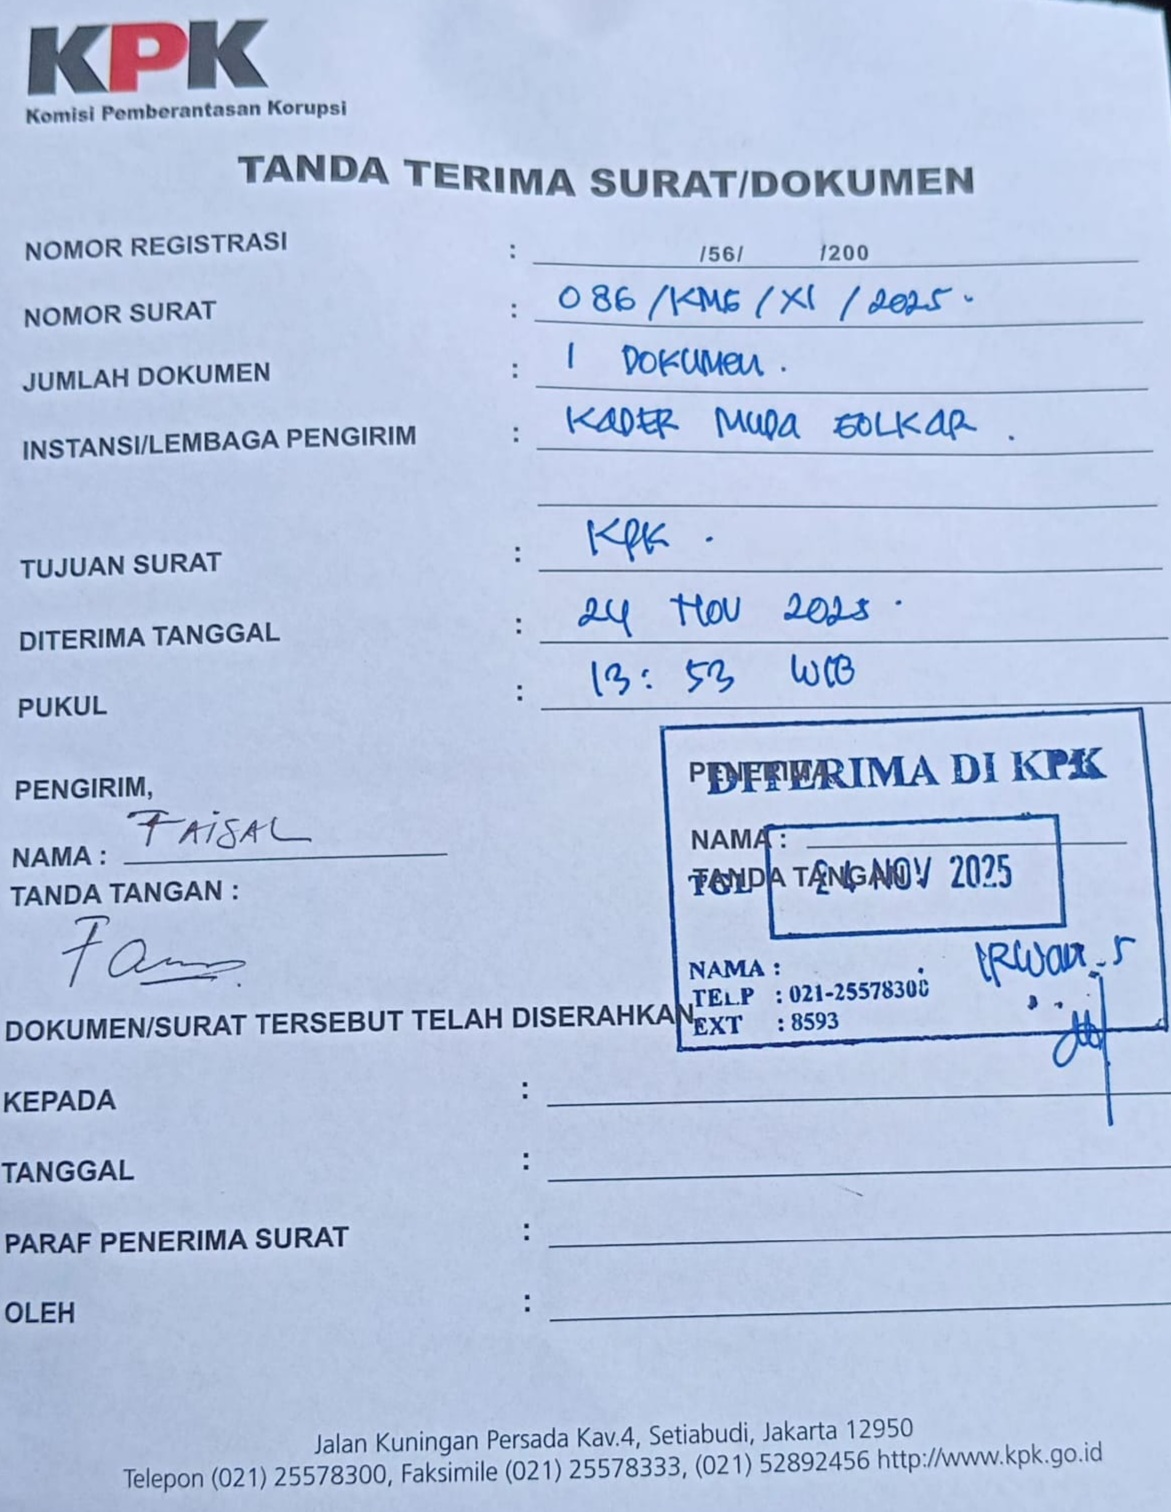 KPK
Komisi Pemberantasan Korupsi
TANDA TERIMA SURAT/DOKUMEN
NOMOR REGISTRASI : /56/ /200
NOMOR SURAT : 086/KMG/XI/2025.
JUMLAH DOKUMEN : 1 DOKUMEN.
INSTANSI/LEMBAGA PENGIRIM : KADER MUDA GOLKAR.
TUJUAN SURAT : KPK.
DITERIMA TANGGAL : 24 NOV 2025.
PUKUL : 13:53 WIB
PENGIRIM,
NAMA : FAISAL
TANDA TANGAN :
PENERIMA
DITERIMA DI KPK
NAMA :
TANDA TANGAN :
TGL 24 NOV 2025
NAMA : IRWAN.S
TELP : 021-25578300
EXT : 8593
DOKUMEN/SURAT TERSEBUT TELAH DISERAHKAN
KEPADA :
TANGGAL :
PARAF PENERIMA SURAT :
OLEH :
Jalan Kuningan Persada Kav.4, Setiabudi, Jakarta 12950
Telepon (021) 25578300, Faksimile (021) 25578333, (021) 52892456 http://www.kpk.go.id